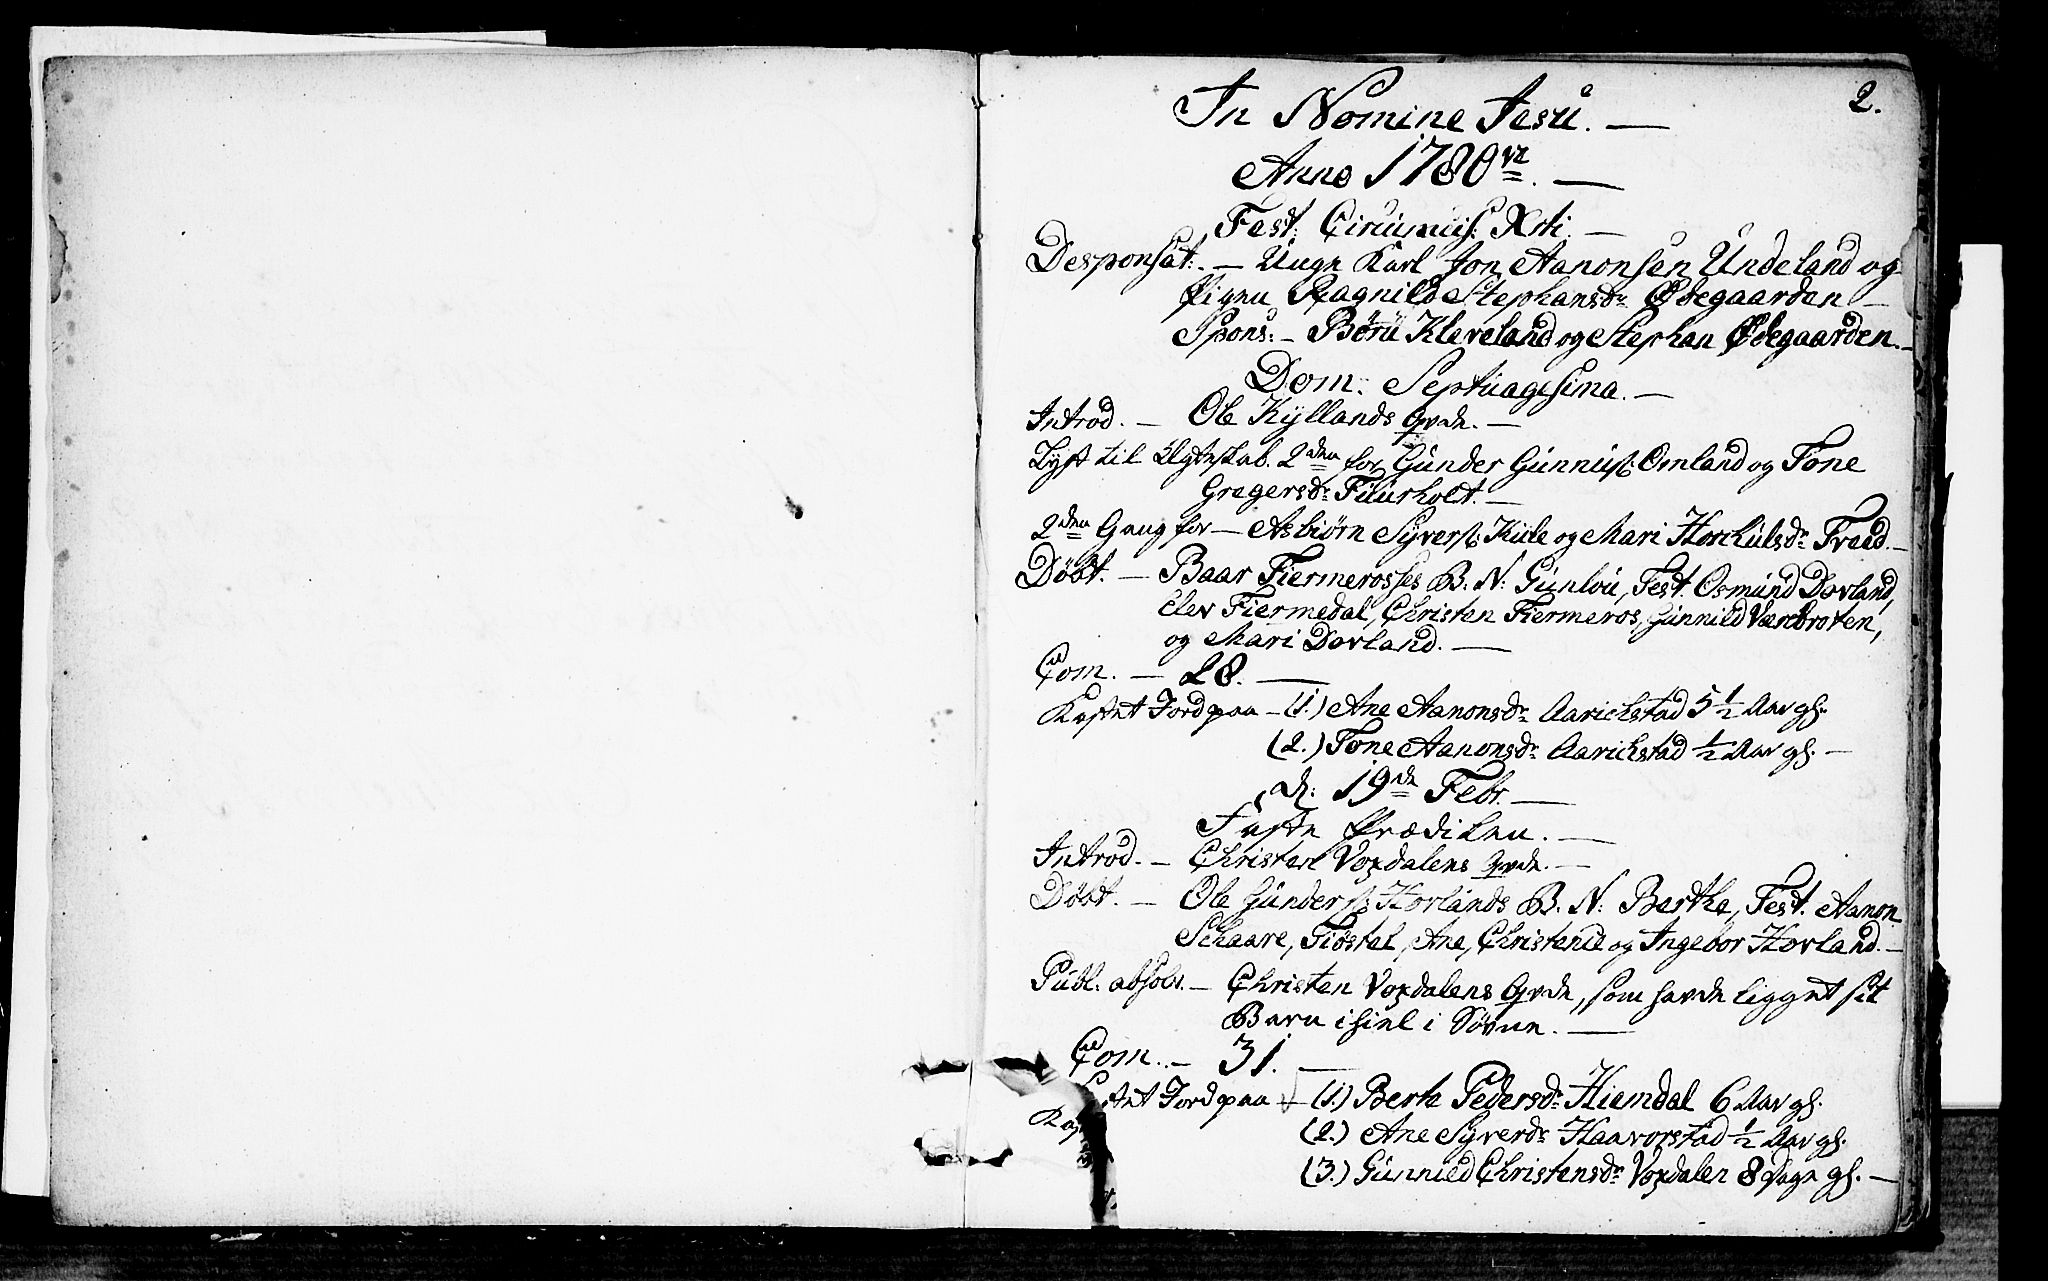 2.
In Nomine Jesu. —
Anno 1780ve. —
Fest: Circumcis: Xsti. —
Desponsat: — Unge Karl Jon Aanonsen Undeland og
Pigen Ragnild Stephansdr Ødegaarden —
Spons: — Børu Kleveland og Stephan Ødegaarden. —
Dom: Septuagesima. —
Introd. — Ole Kyllands Qvde. —
Lyst til Ægteskab. 2den for Gunder Gunnufs: Omland og Tone
Gregersdr Fuurholt. —
2den Gang for — Asbiørn Syvers: Kiile og Mari Torchildsdr Fraad. —
Døbt. — Baar Fiermerosses B: N: Gunlou, Test. Osmund Dovland,
Elev Fiermedal, Christen Fiermeros, Gunnild Værbroten,
og Mari Dovland. —
Com. — 28. —
Kastet Jord paa — (1.) Ane Aanonsdr Aarichstad 5 1/2 Aar gl.
(2.) Tone Aanonsdr Aarichstad 1/2 Aar gl. —
d: 19de Febr. —
Faste Prædiken. —
Introd. — Christen Voxdalens Qvde. —
Døbt. — Ole Gunders: Hovlands B. N: Berthe, Test. Aanon
Schaare, Tiøstal, Ane, Christence og Ingebor Hovland. —
Publ. absolv. — Christen Voxdalens Qvde, som havde ligget sit
Barn ihiel i Søvne. —
Com. — 31. —
Kastet Jord paa — (1.) Berte Pedersdr Hiemdal 6 Aar gl.
(2.) Ane Syverdr Haavorstad 1/2 Aar gl.
(3.) Gunnild Christensdr Voxdalen 8 Dage gl. —